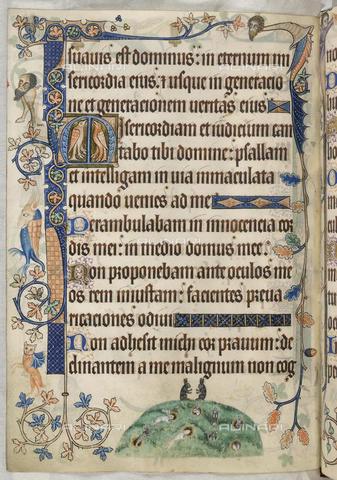 suauis est dominus: in eternum mi
sericordia eius: & usque in generacio
ne et generationem ueritas eius
Misericordiam et iudicium can
tabo tibi domine: psallam
et intelligam in uia immaculata
quando uenies ad me
Perambulabam in innocencia cor
dis mei: in medio domus mee.
Non proponebam ante oculos me
os rem iniustam: facientes preua
ricationes odiui
Non adhesit michi cor prauum: de
clinantem a me malignum non cog
ALINARI